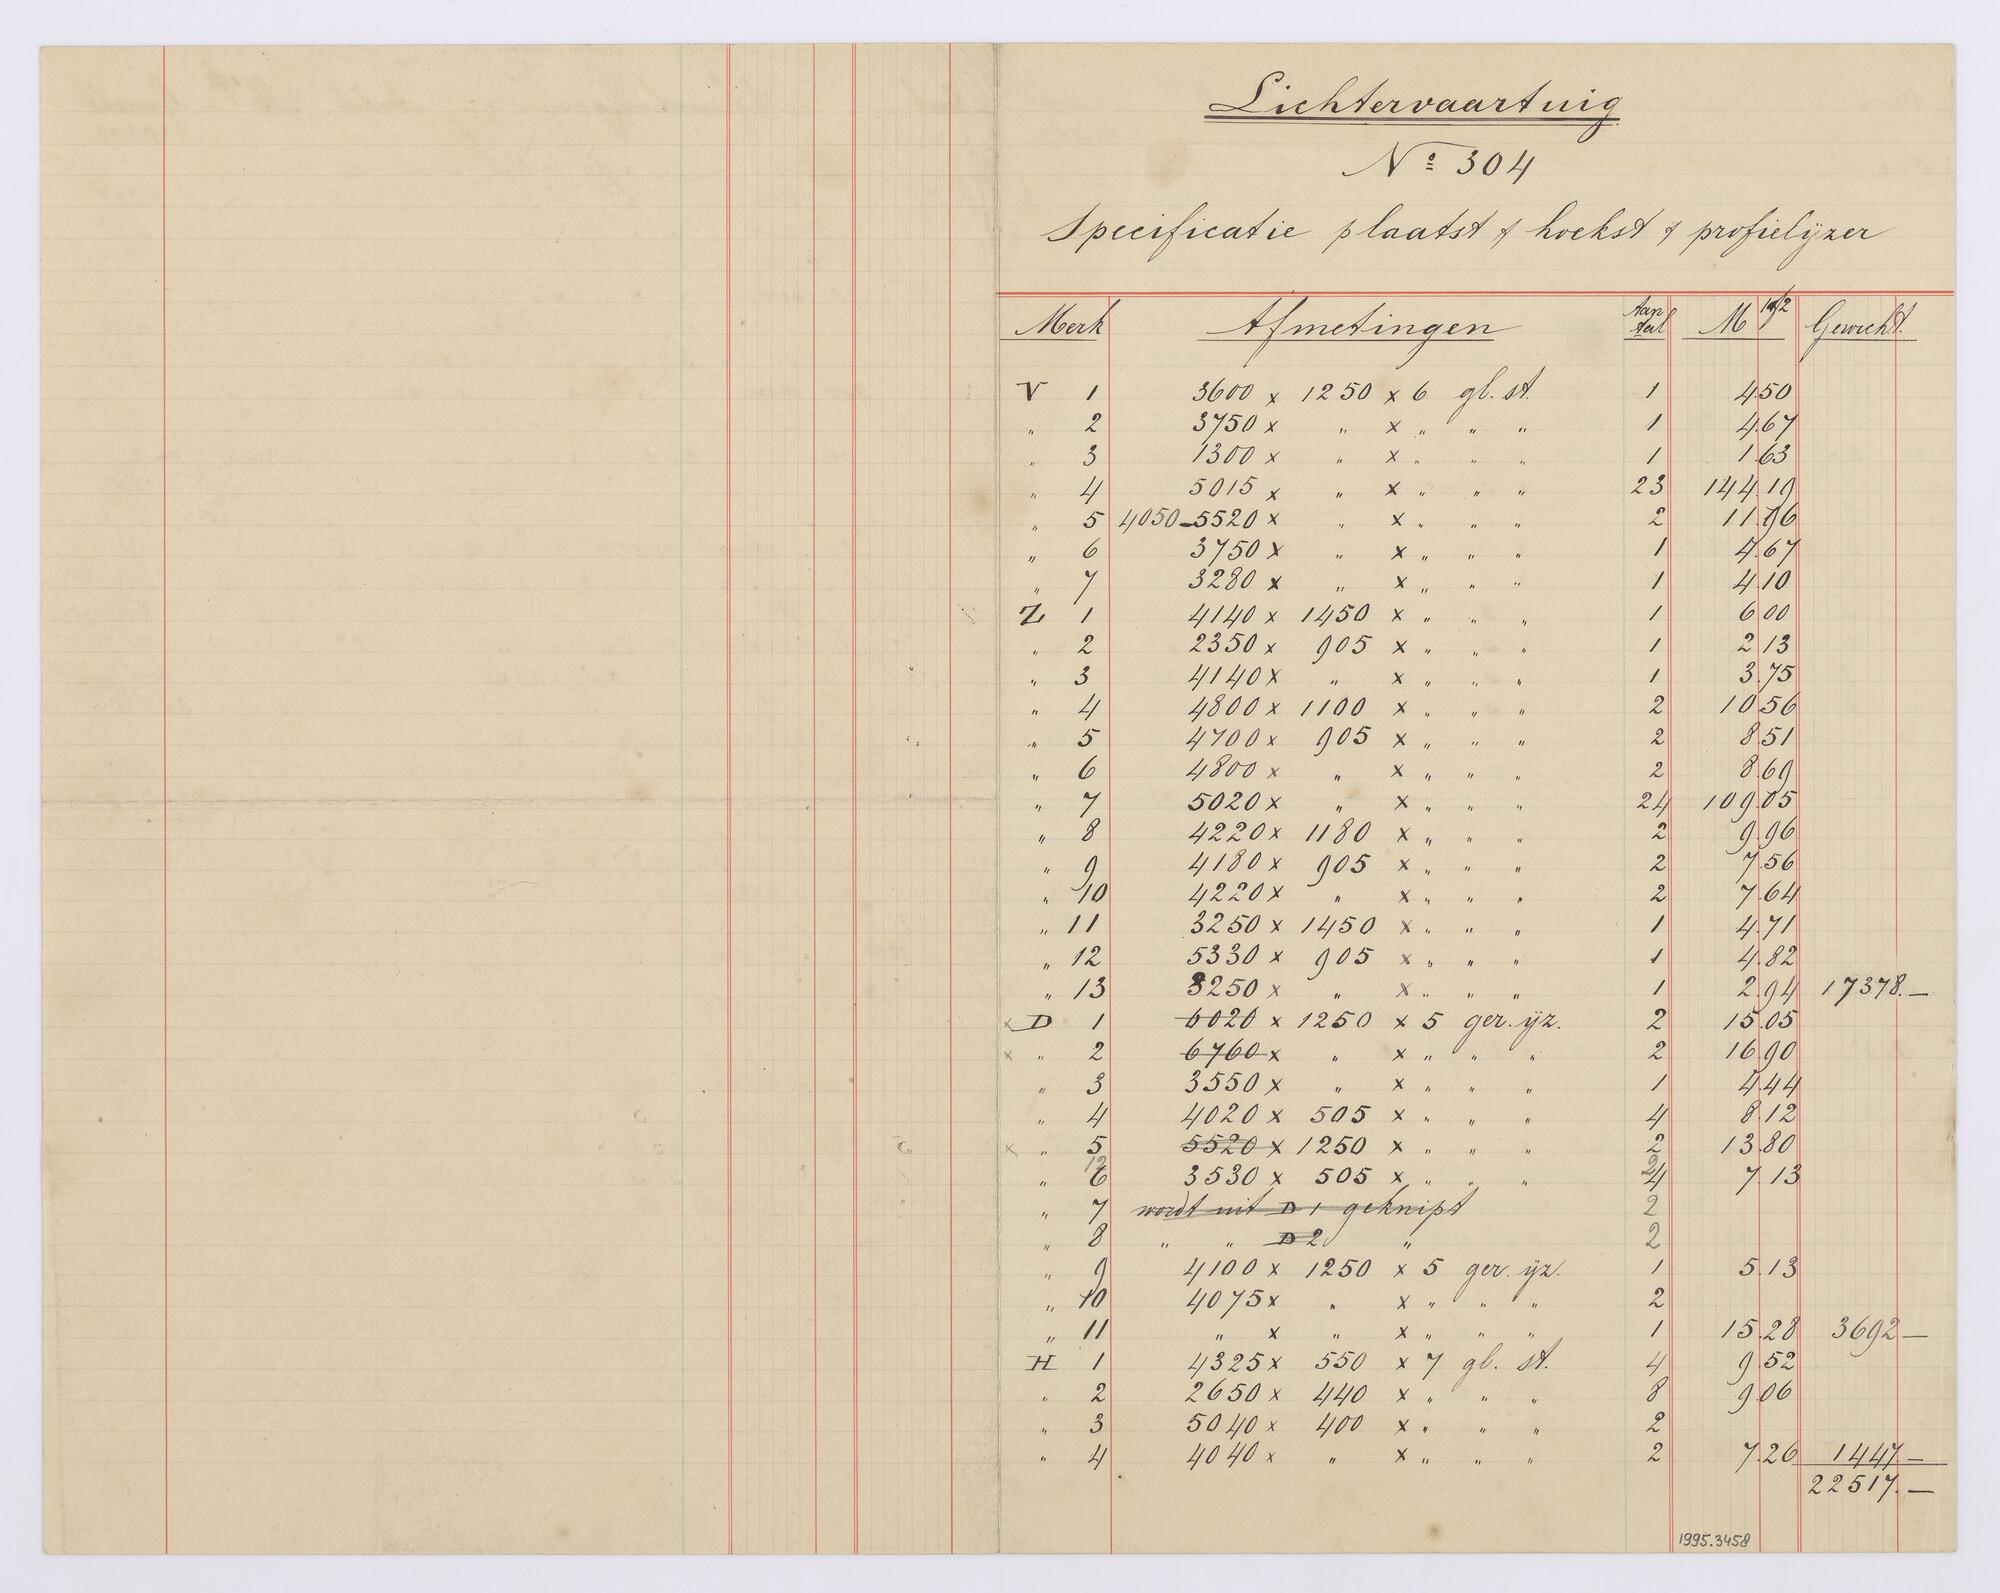 Lichtervaartuig
No 304
Specificatie plaatst & hoekst & profielijzer
Merk Afmetingen Aantal M2 Gewicht
V 1 3600 x 1250 x 6 gl. st. 1 4.50
" 2 3750 x " x " " " 1 4.67
" 3 1300 x " x " " " 1 1.63
" 4 5015 x " x " " " 23 144.19
" 5 4050-5520 x " x " " " 2 11.96
" 6 3750 x " x " " " 1 4.67
" 7 3280 x " x " " " 1 4.10
Z 1 4140 x 1450 x " " " 1 6.00
" 2 2350 x 905 x " " " 1 2.13
" 3 4140 x " x " " " 1 3.75
" 4 4800 x 1100 x " " " 2 10.56
" 5 4700 x 905 x " " " 2 8.51
" 6 4800 x " x " " " 2 8.69
" 7 5020 x " x " " " 24 109.05
" 8 4220 x 1180 x " " " 2 9.96
" 9 4180 x 905 x " " " 2 7.56
" 10 4220 x " x " " " 2 7.64
" 11 3250 x 1450 x " " " 1 4.71
" 12 5330 x 905 x " " " 1 4.82
" 13 3250 x " x " " " 1 2.94 17378.—
x D 1 6020 x 1250 x 5 ger. ijz. 2 15.05
x " 2 6760 x " x " " " 2 16.90
" 3 3550 x " x " " " 1 4.44
" 4 4020 x 505 x " " " 4 8.12
x " 5 5520 x 1250 x " " " 2 13.80
" 6 3530 x 505 x " " " 4 7.13
" 7 wordt uit D 1 geknipt 2
" 8 " " D 2 " 2
" 9 4100 x 1250 x 5 ger. ijz. 1 5.13
" 10 4075 x " x " " " 2
" 11 " x " x " " " 1 15.28 3692—
H 1 4325 x 550 x 7 gl. st. 4 9.52
" 2 2650 x 440 x " " " 8 9.06
" 3 5040 x 400 x " " " 2
" 4 4040 x " x " " " 2 7.26 1447—
22517.—
1995.3458